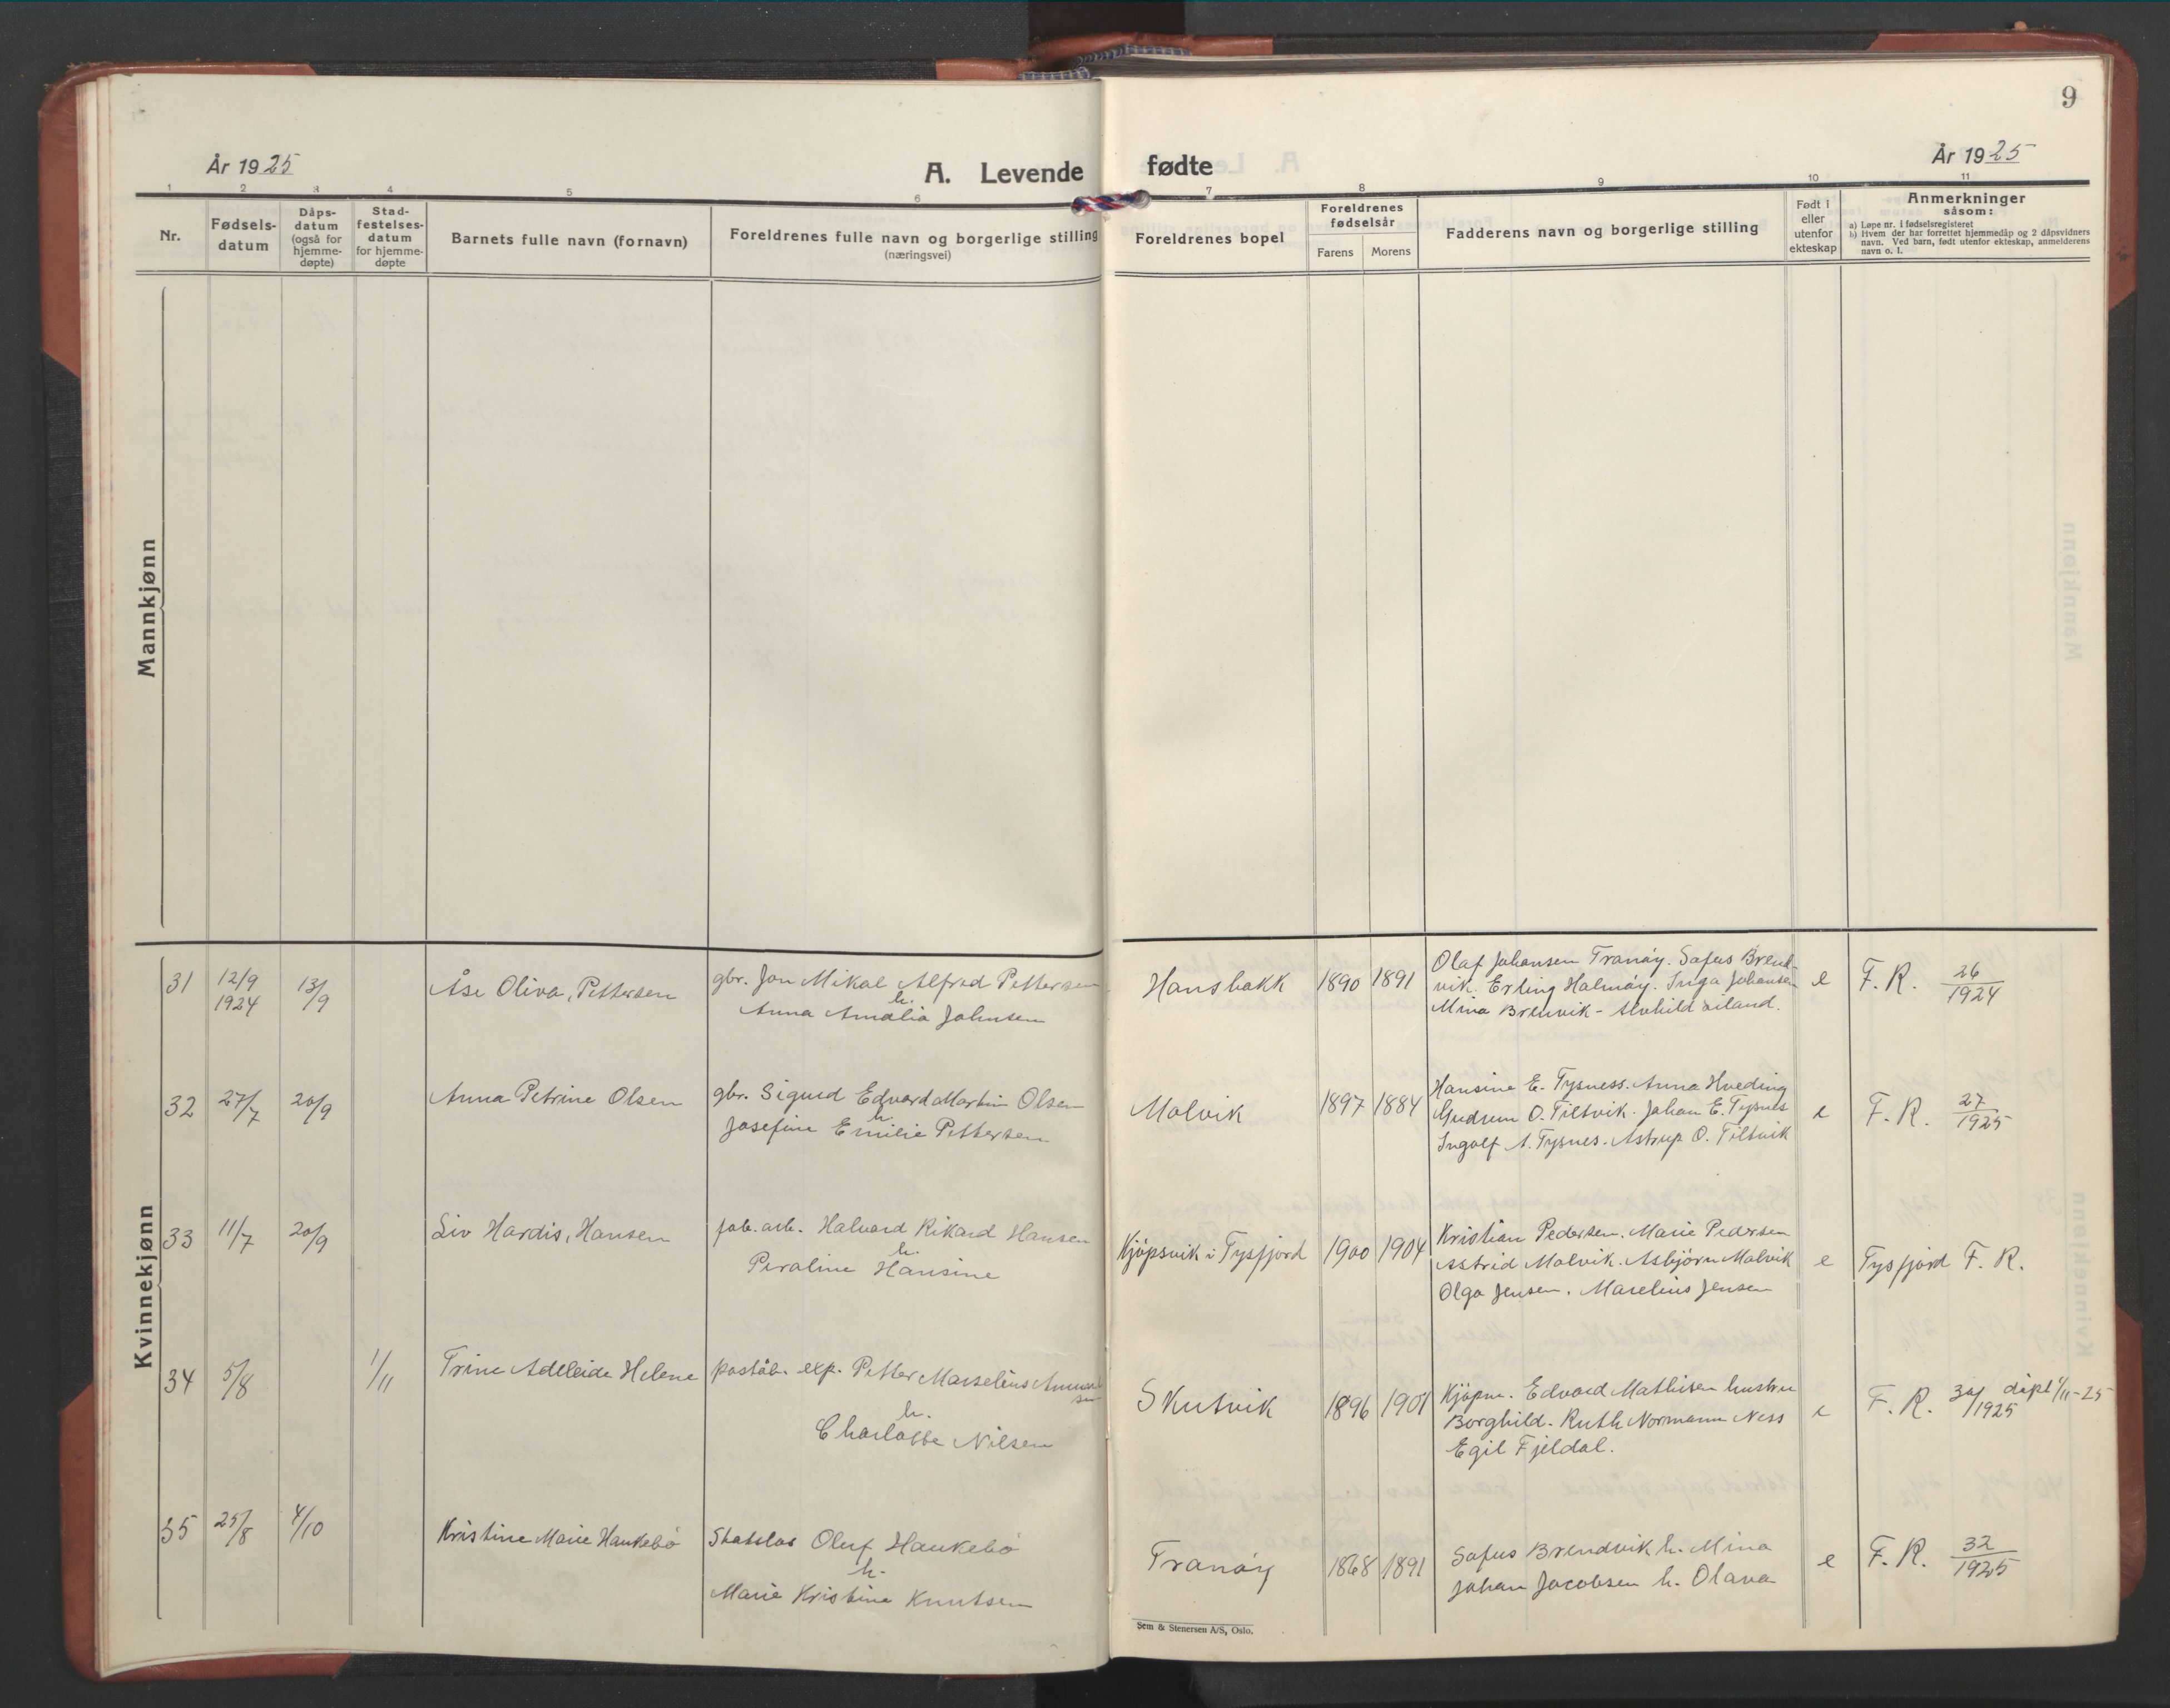 9
År 1925
A. Levende fødte
År 1925
1 2 3 4 5 6 7 8 9 10 11
Nr.
Fødsels-
datum
Dåps-
datum
(også for
hjemme-
døpte)
Stad-
festelses-
datum
for hjemme-
døpte
Barnets fulle navn (fornavn)
Foreldrenes fulle navn og borgerlige stilling
(næringsvei)
Foreldrenes bopel
Foreldrenes
fødselsår
Farens Morens
Fadderens navn og borgerlige stilling
Født i
eller
utenfor
ekteskap
Anmerkninger
såsom:
a) Løpe nr. i fødselsregisteret
b) Hvem der har forrettet hjemmedåp og 2 dåpsvidners
navn. Ved barn, født utenfor ekteskap, anmelderens
navn o. l.
Mannkjønn
Kvinnekjønn
31
12/9
1924
13/9
Åse Oliva, Pettersen
gbr. Jon Mikal Alfred Pettersen
h.
Anna Amalia Johnsen
Hansbakk
1890 1891
Olaf Johansen Tranøy. Sofus Brend-
vik. Erling Halmøy. Inga Johansen
Mina Brenvik - Alvhild
e
F. R. 26/1924
32
27/7
20/9
Anna Petrine Olsen
gbr. Sigurd Edvard Martin Olsen
h.
Josefine Emilie Pettersen
Malvik
1897 1884
Hansine E. Tysness. Anna Hveding
Gudrun O. Tiltvik. Johan E. Tysnes
Ingolf A. Tysnes. Astrup O. Tiltvik
e
F. R. 27/1925
33
11/7
20/9
Liv Hardis, Hansen
fab. arb. Halvard Rikard Hansen
h.
Peraline Hansine
Kjöpsvik i Tysfjord
1900 1904
Kristian Pedersen. Marie Pedersen
Astrid Malvik. Asbjörn Malvik
Olga Jensen. Marelius Jensen
e
Tysfjord F. R.
34
5/8
1/11
Trine Adeleide Helene
poståb. exp. Petter Marselius
h.
Charlotte Nilsen
Skutvik
1896 1901
Kjöpm. Edvard Mathisen hustru
Borghild. Ruth Normann Ness
Egil Fjeldal.
e
F. R. 30/1925 döpt 1/11-25
35
25/8
4/10
Kristine Marie Haukebö
Statslos Oluf Haukebö
h.
Marie Kristine Knutsen
Tranöy
1868 1891
Sofus Brendvik h. Mina
Johan Jacobsen h. Olava
e
F. R. 32/1925
Sem & Stenersen A/S, Oslo.